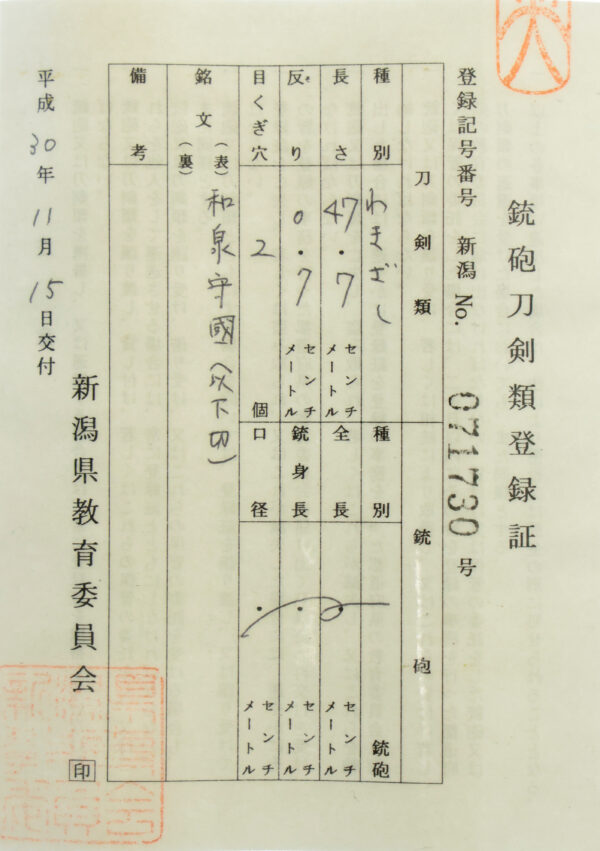 銃砲刀剣類登録証
登録記号番号 新潟 No. 071730 号
刀剣類
銃砲
種別 わきざし
種別 銃砲
長さ 47.7 センチメートル
全長 ・ センチメートル
反り(そ) 0.7 センチメートル
銃身長 ・ センチメートル
目くぎ穴 2 個
口径 ・ センチメートル
銘文 (表) 和泉守國(以下切)
(裏)
備考
平成30年11月15日交付
新潟県教育委員会 印